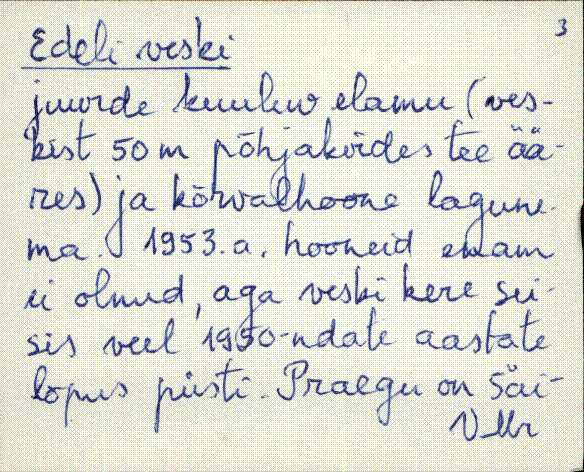 3
Edeli veski
juurde kuuluv elamu (ves-
kist 50 m põhjakirdes tee ää-
res) ja kõrvalhoone lagune-
ma. 1953.a. hooneid enam
ei olnud, aga veski kere sei-
sis veel 1950-ndate aastate
lõpus püsti. Praegu on säi-